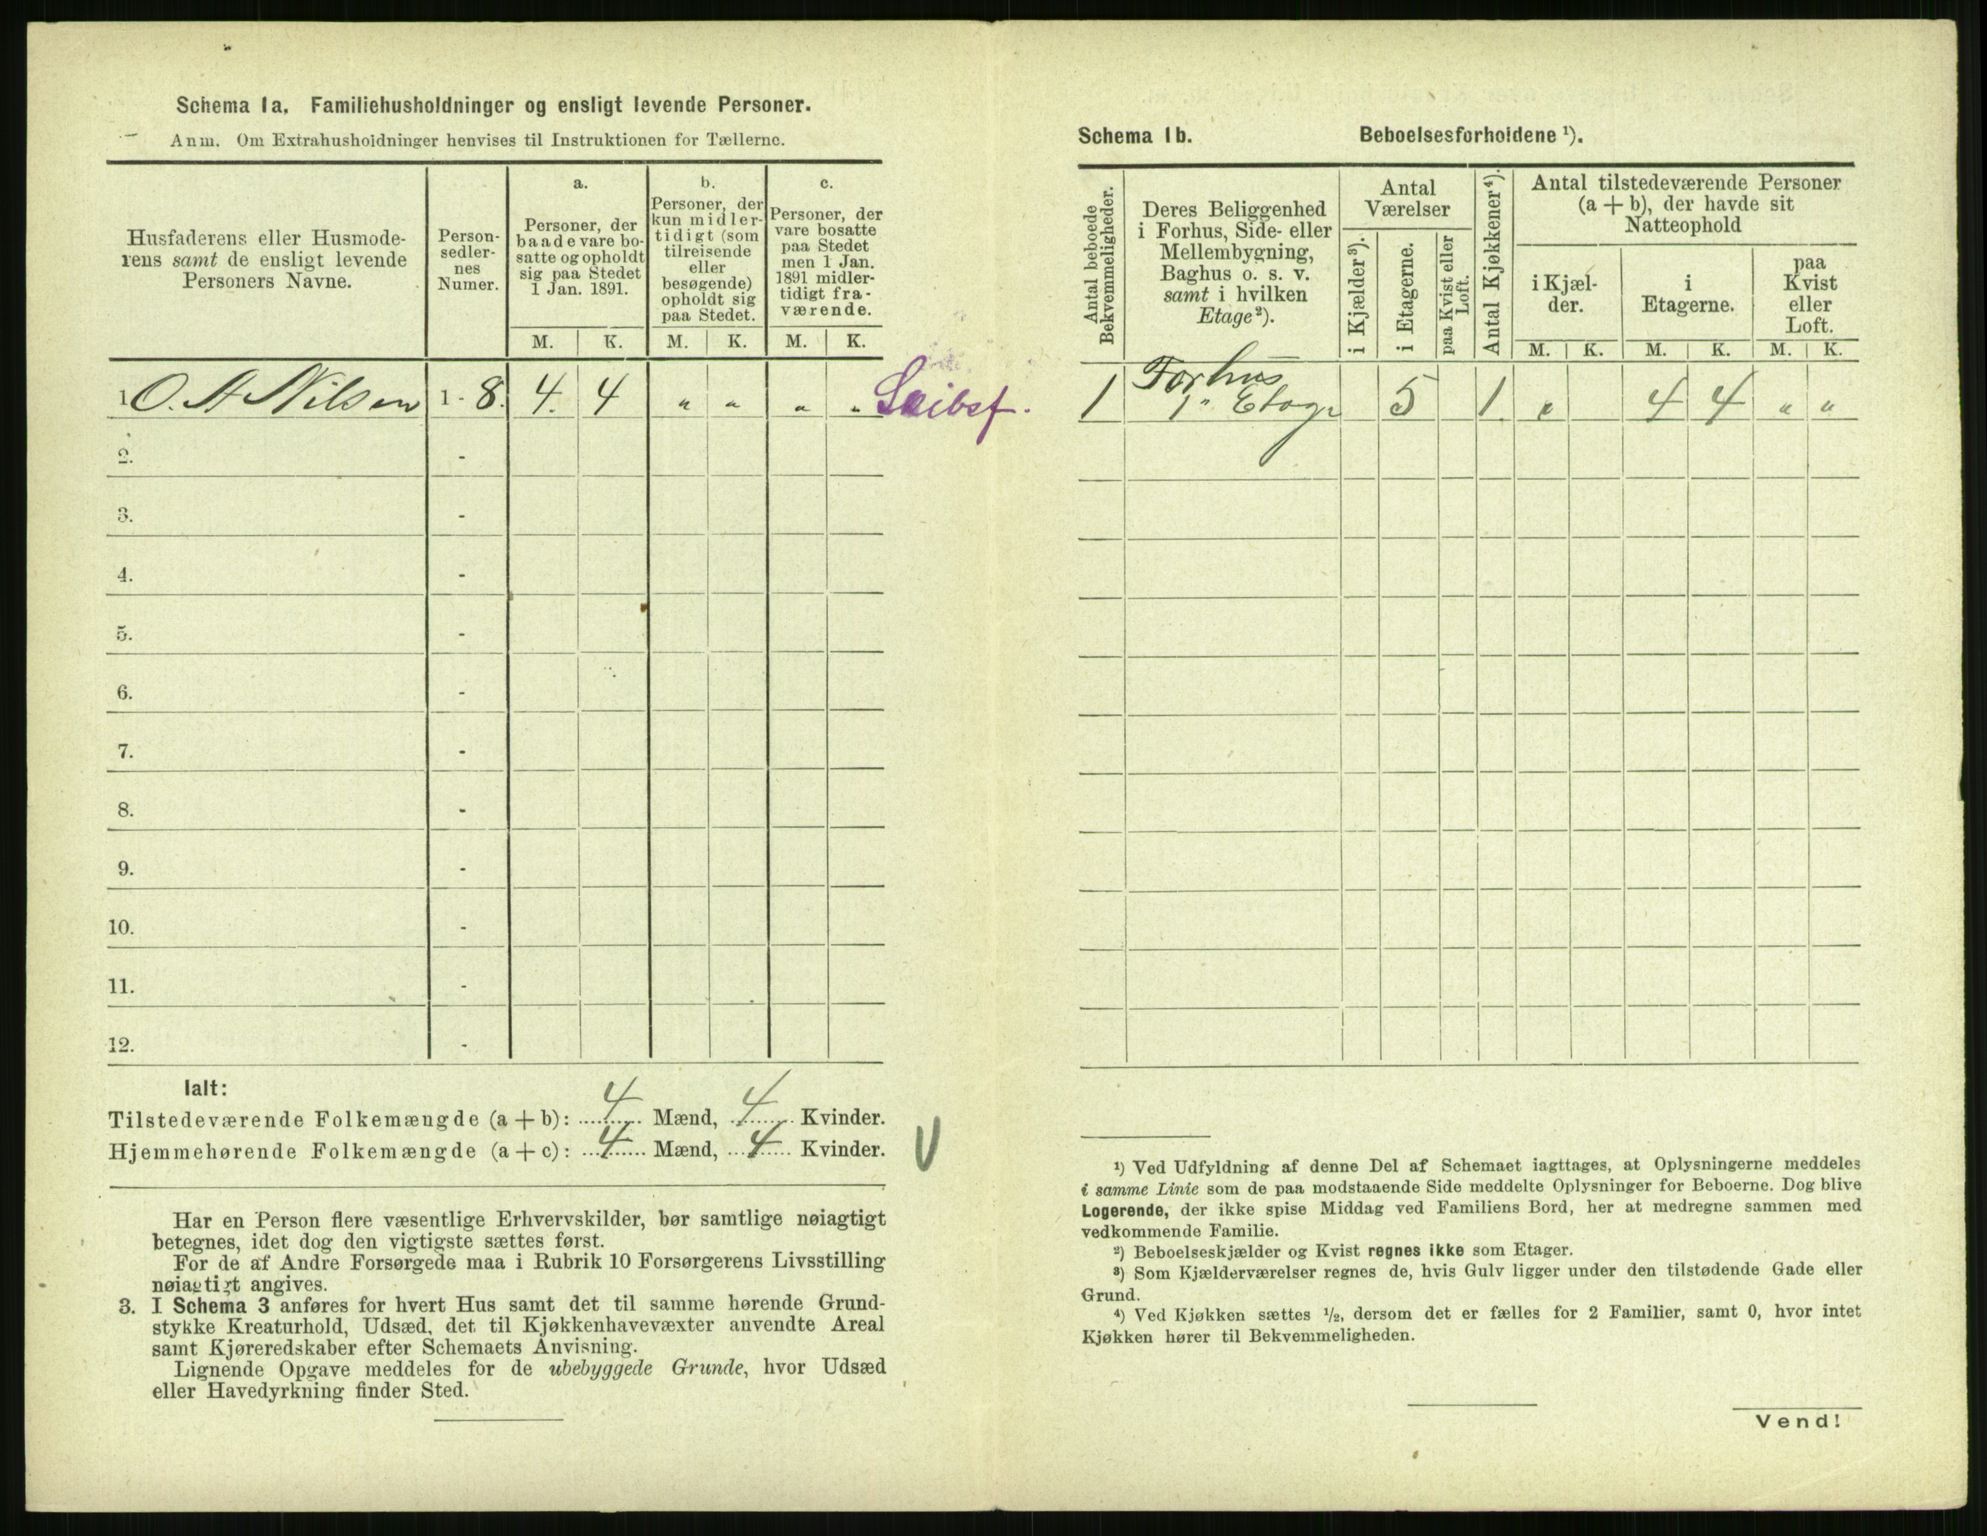 Schema 1a. Familiehusholdninger og ensligt levende Personer.
Anm. Om Extrahusholdninger henvises til Instruktionen for Tællerne.
Husfaderens eller Husmoderens samt de ensligt levende Personers Navne.
Personsedlernes Numer.
a.
Personer, der baade vare bosatte og opholdt sig paa Stedet 1 Jan. 1891.
b.
Personer, der kun midlertidigt (som tilreisende eller besøgende) opholdt sig paa Stedet.
c.
Personer, der vare bosatte paa Stedet men 1 Jan. 1891 midlertidigt fraværende.
M. K. M. K. M. K.
1 O. A Nilsen 1 - 8. 4. 4 " " " "
2. -
3. -
4. -
5. -
6. -
7. -
8. -
9. -
10. -
11. -
12. -
Ialt:
Tilstedeværende Folkemængde (a + b): 4 Mænd, 4 Kvinder.
Hjemmehørende Folkemængde (a + c): 4 Mænd, 4 Kvinder.
Har en Person flere væsentlige Erhvervskilder, bør samtlige nøiagtigt
betegnes, idet dog den vigtigste sættes først.
For de af Andre Forsørgede maa i Rubrik 10 Forsørgerens Livsstilling
nøiagtigt angives.
3. I Schema 3 anføres for hvert Hus samt det til samme hørende Grund-
stykke Kreaturhold, Udsæd, det til Kjøkkenhavevæxter anvendte Areal
samt Kjøreredskaber efter Schemaets Anvisning.
Lignende Opgave meddeles for de ubebyggede Grunde, hvor Udsæd
eller Havedyrkning finder Sted.
Schema 1b. Beboelsesforholdene ¹).
Antal beboede Bekvemmeligheder.
Deres Beliggenhed i Forhus, Side- eller Mellembygning, Baghus o. s. v. samt i hvilken Etage²).
Antal Værelser
i Kjælder³).
i Etagerne.
paa Kvist eller Loft.
Antal Kjøkkener⁴).
Antal tilstedeværende Personer (a + b), der havde sit Natteophold
i Kjælder.
i Etagerne.
paa Kvist eller Loft.
M. K. M. K. M. K.
1 Forhus 1" Etage 5 1 " 4 4 " "
¹) Ved Udfyldning af denne Del af Schemaet iagttages, at Oplysningerne meddeles
i samme Linie som de paa modstaaende Side meddelte Oplysninger for Beboerne. Dog blive
Logerende, der ikke spise Middag ved Familiens Bord, her at medregne sammen med
vedkommende Familie.
²) Beboelseskjælder og Kvist regnes ikke som Etager.
³) Som Kjælderværelser regnes de, hvis Gulv ligger under den tilstødende Gade eller
Grund.
⁴) Ved Kjøkken sættes ½, dersom det er fælles for 2 Familier, samt 0, hvor intet
Kjøkken hører til Bekvemmeligheden.
Vend!